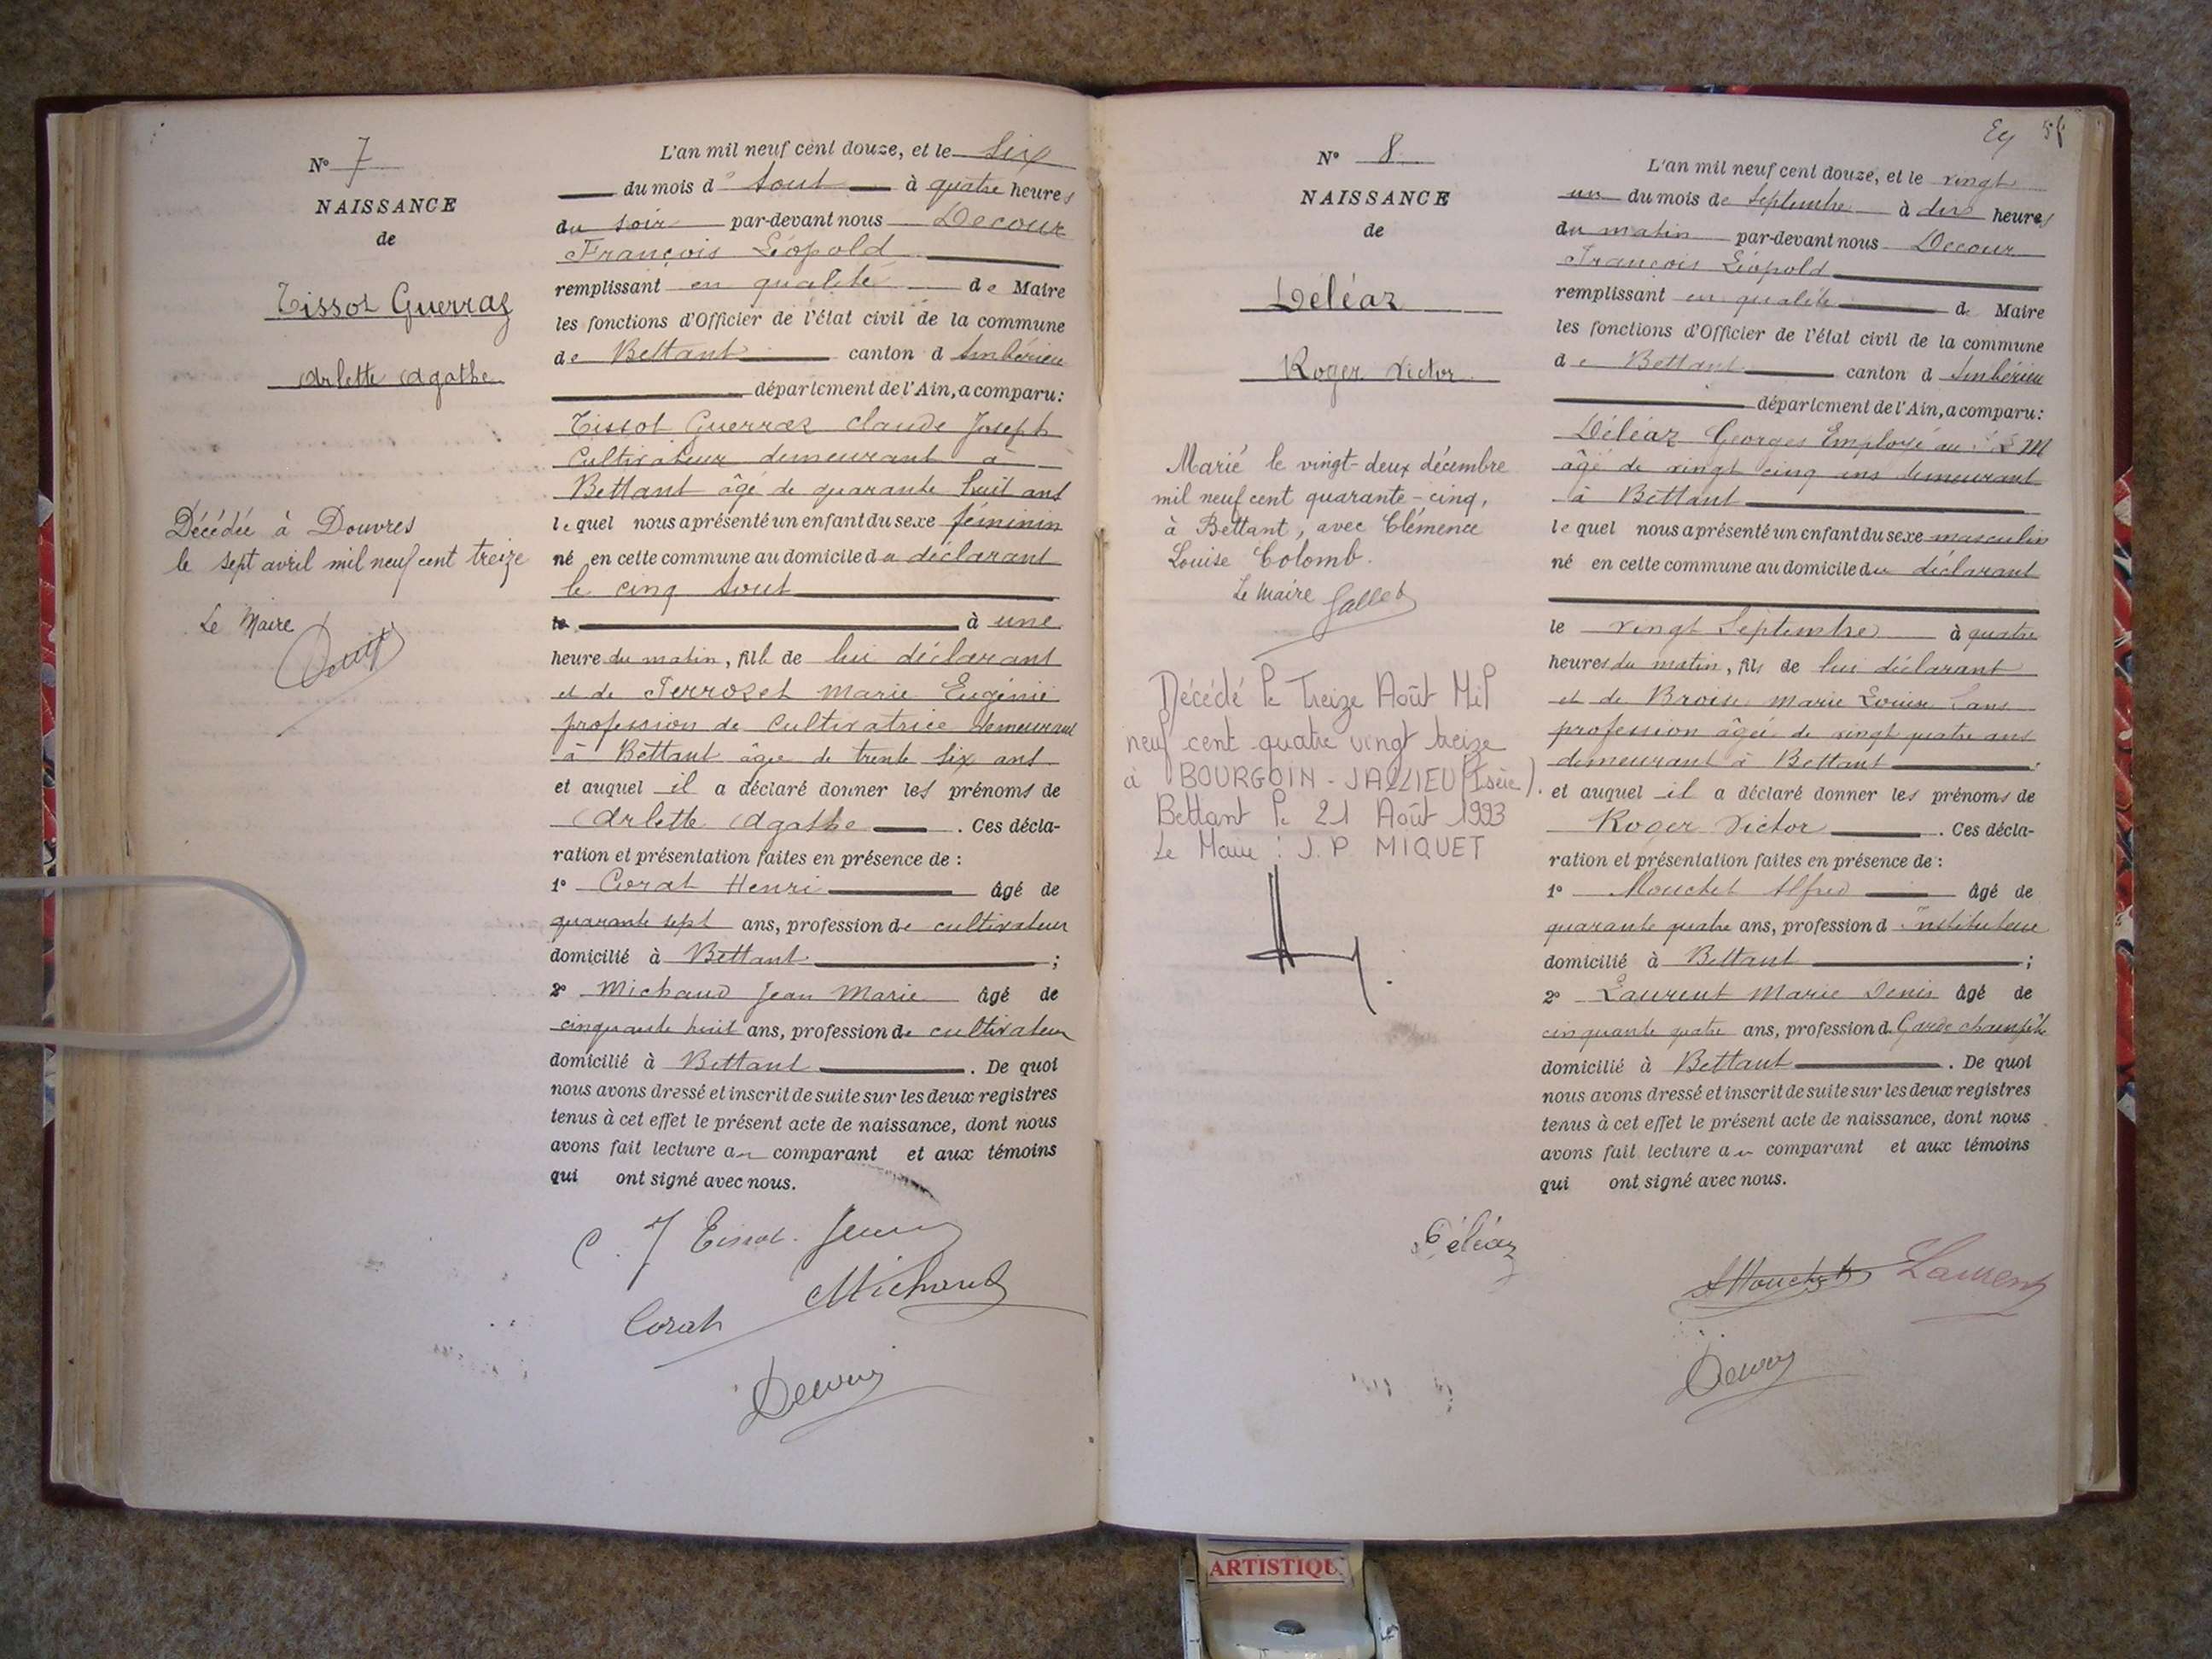 N° 7
NAISSANCE
de
Tissot Guerraz
Arlette Agathe
Décédée à Douvres
le sept avril mil neuf cent treize
Le Maire
L'an mil neuf cent douze, et le six
du mois d' Aout à quatre heures
du soir par-devant nous Decour
François Léopold
remplissant en qualité de Maire
les fonctions d'Officier de l'état civil de la commune
de Bettant canton d Ambérieu
département de l'Ain, a comparu:
Tissot Guerraz Claude Joseph
Cultivateur demeurant à
Bettant âgé de quarante huit ans
lequel nous a présenté un enfant du sexe féminin
né en cette commune au domicile du déclarant
le cinq Aout
le à une
heure du matin, fille de lui déclarant
et de Perrozet Marie Eugénie
profession de Cultivatrice demeurant
à Bettant âgée de trente six ans
et auquel il a déclaré donner les prénoms de
Arlette Agathe. Ces décla-
ration et présentation faites en présence de :
1° Corat Henri âgé de
quarante sept ans, profession de cultivateur
domicilié à Bettant ;
2° Michaud Jean Marie âgé de
cinquante huit ans, profession de cultivateur
domicilié à Bettant. De quoi
nous avons dressé et inscrit de suite sur les deux registres
tenus à cet effet le présent acte de naissance, dont nous
avons fait lecture au comparant et aux témoins
qui ont signé avec nous.
C. J Tissot
Michaud
Corat
Decour
N° 8
NAISSANCE
de
Déléaz
Roger Victor
Marié le vingt-deux décembre
mil neuf cent quarante-cinq,
à Bettant, avec Clémence
Louise Colomb.
Le Maire Gallet
Décédé le Treize Août Mil
neuf cent quatre vingt treize
à BOURGOIN-JALLIEU (Isère).
Bettant le 21 Août 1993
Le Maire : J.P MIQUET
L'an mil neuf cent douze, et le vingt
un du mois de Septembre à dix heures
du matin par-devant nous Decour
François Léopold
remplissant en qualité de Maire
les fonctions d'Officier de l'état civil de la commune
de Bettant canton d Ambérieu
département de l'Ain, a comparu:
Déléaz Georges Employé au L M
âgé de vingt cinq ans demeurant
à Bettant
lequel nous a présenté un enfant du sexe masculin
né en cette commune au domicile du déclarant
le vingt Septembre à quatre
heures du matin, fils de lui déclarant
et de Marie Louise Sans
profession âgée de vingt quatre ans
demeurant à Bettant
et auquel il a déclaré donner les prénoms de
Roger Victor. Ces décla-
ration et présentation faites en présence de :
1° Mouchet Alfred âgé de
quarante quatre ans, profession d instituteur
domicilié à Bettant ;
2° Laurent Marie Denis âgé de
cinquante quatre ans, profession d Garde champêtre
domicilié à Bettant. De quoi
nous avons dressé et inscrit de suite sur les deux registres
tenus à cet effet le présent acte de naissance, dont nous
avons fait lecture au comparant et aux témoins
qui ont signé avec nous.
Déléaz
AMouchet Laurent
Decour
ARTISTIQU